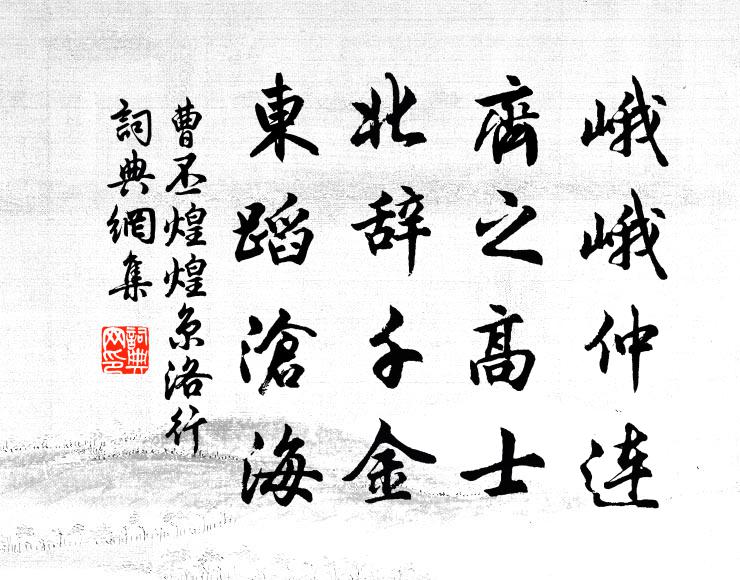 峨峨仲连
齊之高士
北辞千金
東蹈滄海
曹丕煌煌京洛行
詞典網集
詞典網印